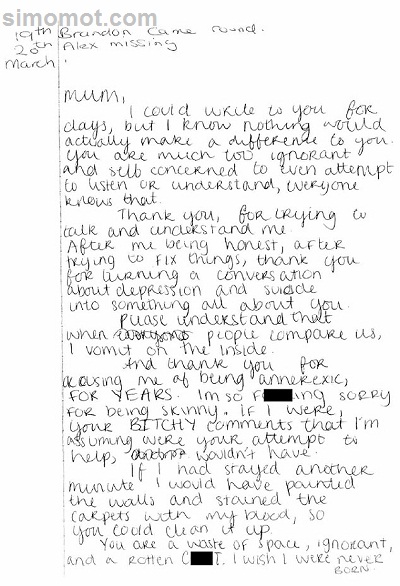 simomot.com
19th Brandon came round.
20th Alex missing
March
MUM,
I could write to you for
days, but I know nothing would
actually make a difference to you.
You are much too ignorant
and self concerned to even attempt
to listen or understand, everyone
knows that.
Thank you, for trying to
talk and understand me.
After me being honest, after
trying to fix things, thank you
for turning a conversation
about depression and suicide
into something all about you.
Please understand that
when people compare us,
I vomit on the inside.
And thank you for
accusing me of being annerexic,
FOR YEARS. Im so F ing sorry
for being skinny. If I were,
your BITCHY comments that I'm
assuming were your attempt to
help, wouldn't have.
If I had stayed another
minute I would have painted
the walls and stained the
carpets with my blood, so
you could clean it up
You are a waste of space, ignorant,
and a rotten C T. I wish I were never
BORN.